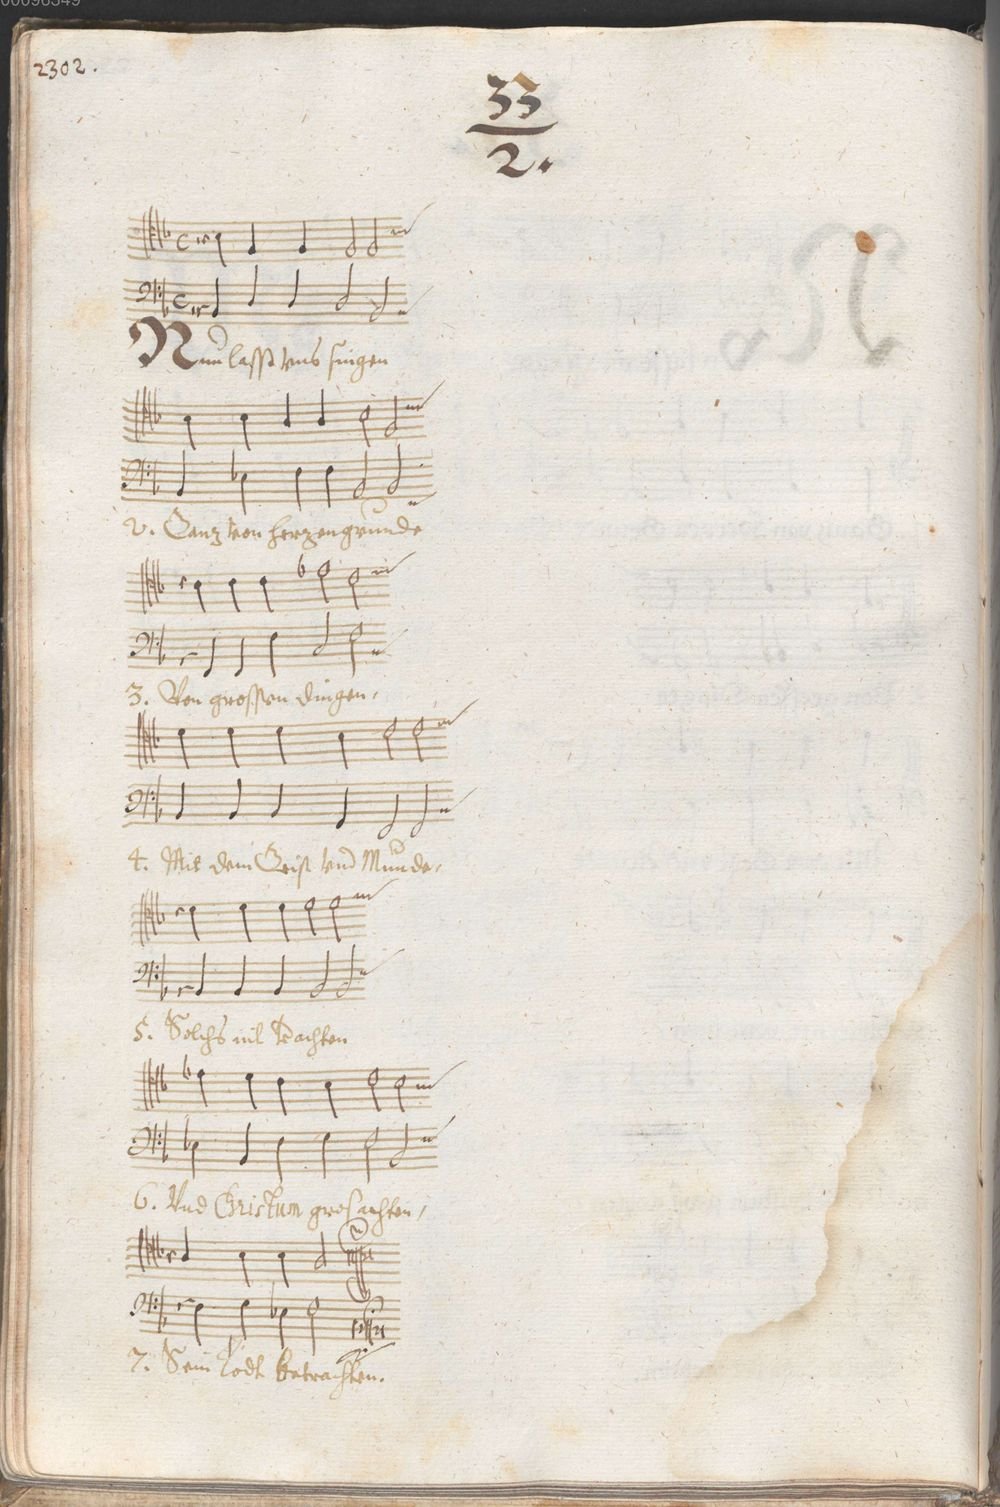 00098349
2302.
33
2.
Nun lasst vns singen
2. Gantz von hertzengrunde
3. Von grossen dingen,
4. Mit dem Geist vnd Munde,
5. Solchs nit verachten
6. Vnd Christum gros achten,
7. Sein todt betrachten.